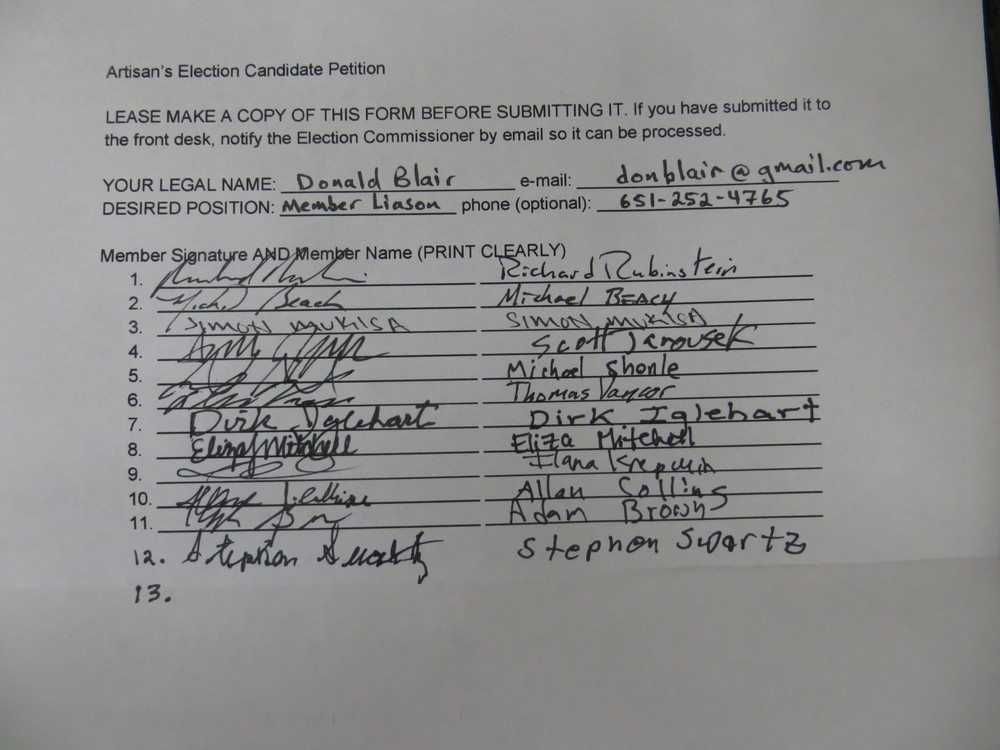 Artisan's Election Candidate Petition
LEASE MAKE A COPY OF THIS FORM BEFORE SUBMITTING IT. If you have submitted it to
the front desk, notify the Election Commissioner by email so it can be processed.
YOUR LEGAL NAME: Donald Blair e-mail: donblair@gmail.com
DESIRED POSITION: Member Liason phone (optional): 651-252-4765
Member Signature AND Member Name (PRINT CLEARLY)
1. Richard Rubinstein
2. Michael Beach Michael BEACH
3. SIMON MUKISA SIMON MUKISA
4. Scott Jerousek
5. Michael Shonle
6. Thomas Vancor
7. Dirk Iglehart Dirk Iglehart
8. Eliza Mitchell Eliza Mitchell
9. Ilana
10. Allan Collins
11. Adam Brown
12. Stephon Swartz Stephon Swartz
13.